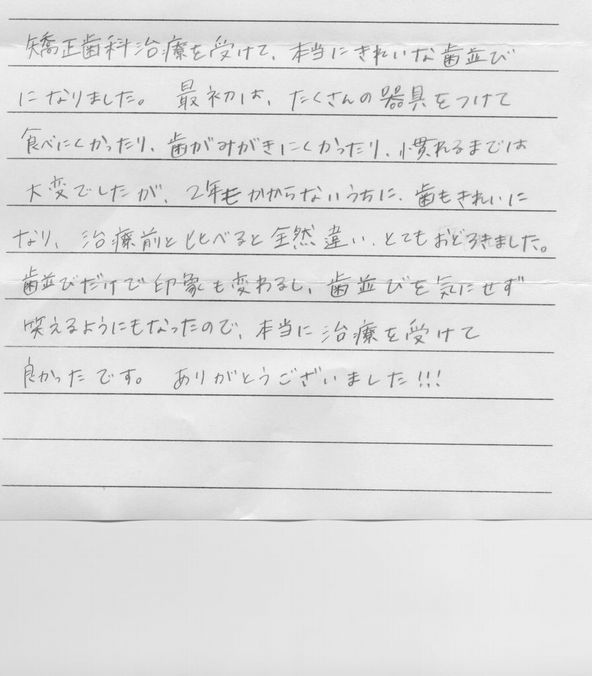 矯正歯科治療を受けて、本当にきれいな歯並び
になりました。 最初は、たくさんの器具をつけて
食べにくかったり、歯がみがきにくかったり、慣れるまでは
大変でしたが、2年もかからないうちに、歯もきれいに
なり、治療前とくらべると全然違い、とてもおどろきました。
歯並びだけで印象も変わるし、歯並びを気にせず
笑えるようにもなったので、本当に治療を受けて
良かったです。 ありがとうございました!!!